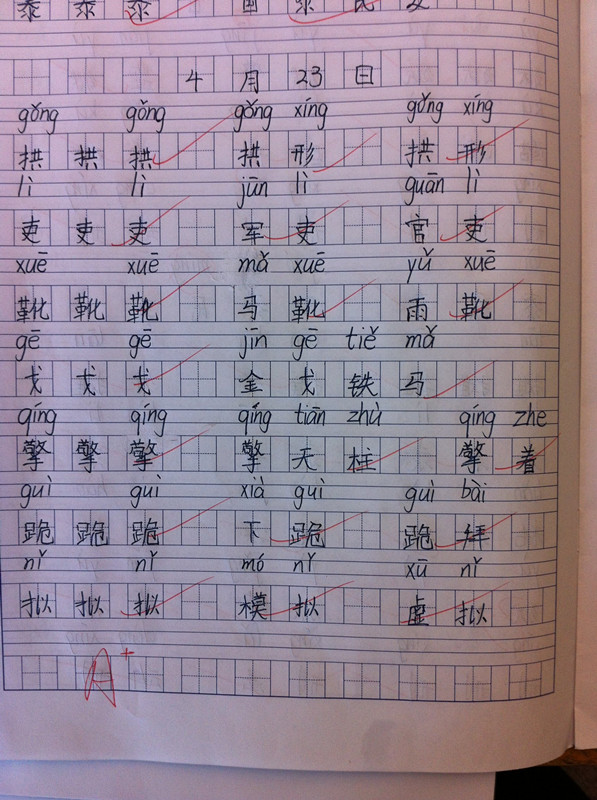 泰 泰 泰 国 泰 民 安
4 月 23 日
gǒng gǒng gǒng xíng gǒng xíng
拱 拱 拱 拱 形 拱 形
lì lì jūn lì guān lì
吏 吏 吏 军 吏 官 吏
xuē xuē mǎ xuē yǔ xuē
靴 靴 靴 马 靴 雨 靴
gē gē jīn gē tiě mǎ
戈 戈 戈 金 戈 铁 马
qíng qíng qíng tiān zhù qíng zhe
擎 擎 擎 擎 天 柱 擎 着
guì guì xià guì guì bài
跪 跪 跪 下 跪 跪 拜
nǐ nǐ mó nǐ xū nǐ
拟 拟 拟 模 拟 虚 拟
A+